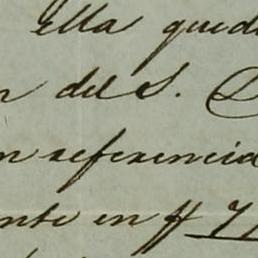 ella qued
n del S. D
n referencia
nte en ff 71